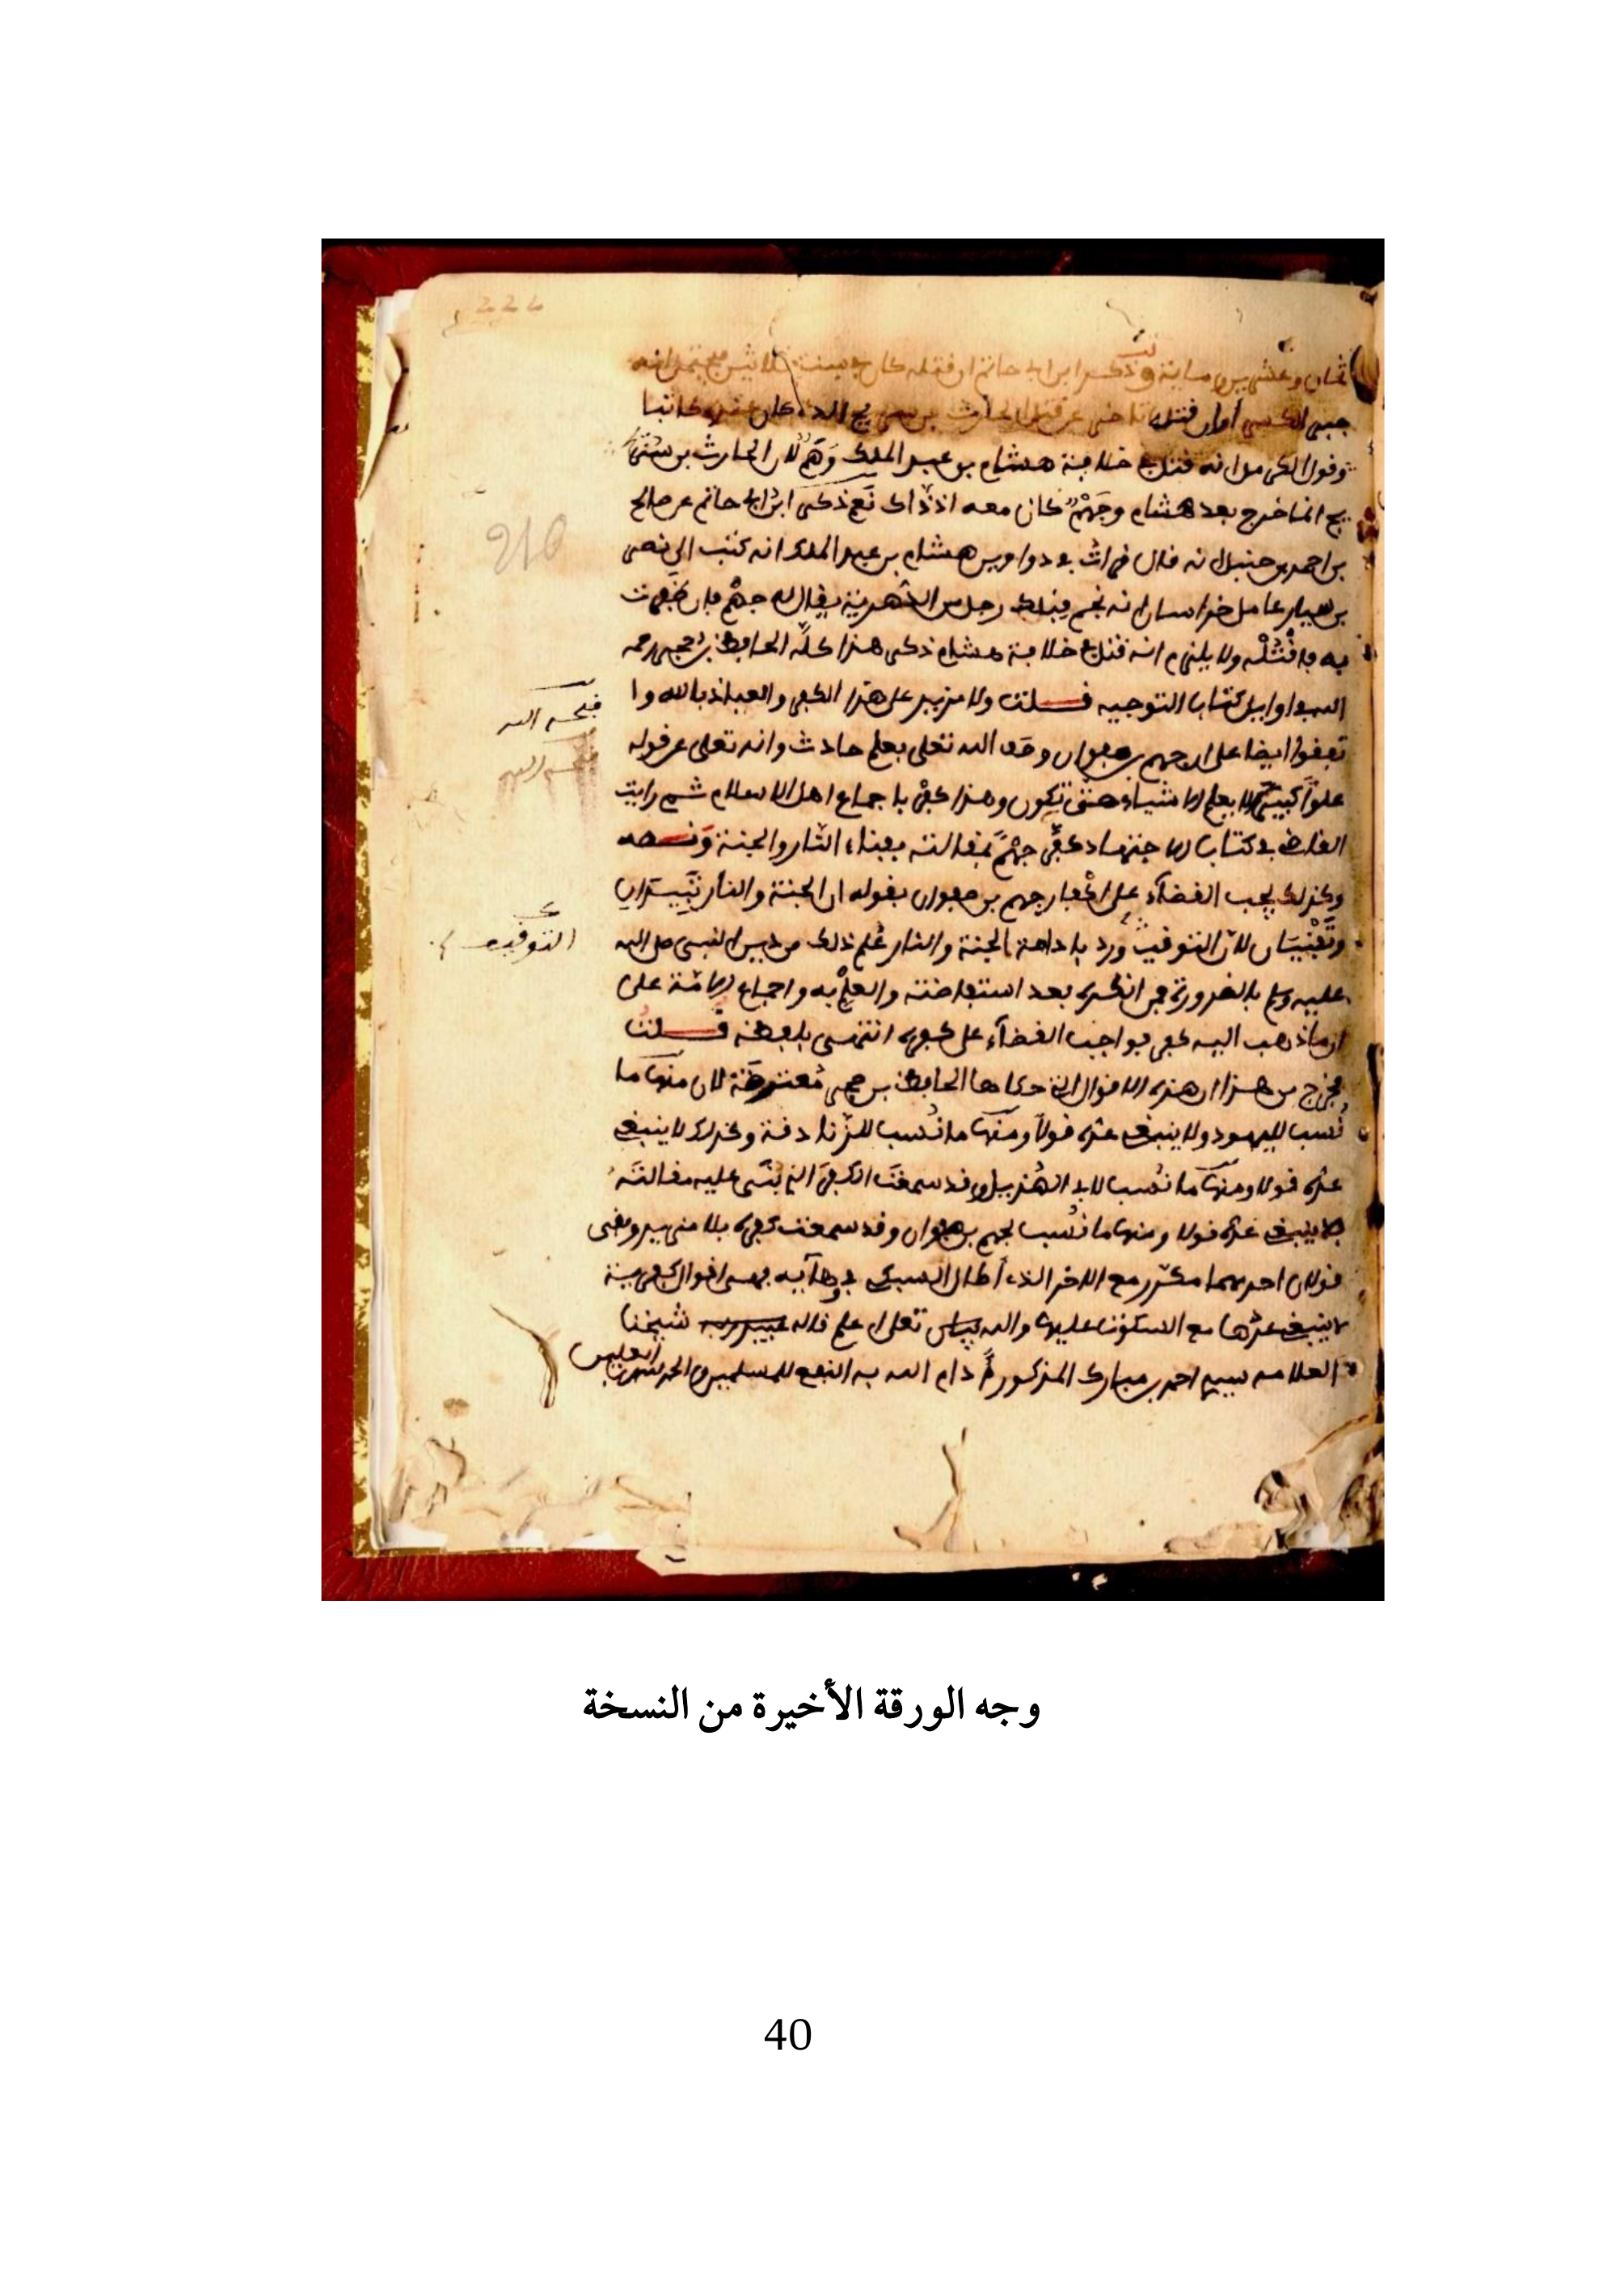 222
ثمان وعشرين ومائة وذكر ابن ابي حاتم ان قتله كان في سنة ثلاثين
وقول الكرماني انه قتل في خلافة هشام بن عبد الملك وَهَمٌ لان الحارث بن
يج انما خرج بعد هشام وجَهْمٌ كان معه اذ ذاك نعم ذكر ابن ابي حاتم عن صالح
بن احمد بن حنبل انه قال قرات في دواوين هشام بن عبد الملك انه كتب الى نصر
بن سيار عامل خراسان انه نجم قبلك رجل من الدهرية يقال له جهم فان ظفرت
به فاقتله ولا يلزم انه قتل في خلافة هشام ذكر هذا كله الحافظ بن حجر رحمه
الله في اوايل كتاب التوحيد قلت ولا مزيد على هذا الكفر والعياذ بالله وا
قبحه الله
ايضا على ان جهم بن صفوان وصف الله تعلى بعلم حادث وانه تعلى عن قوله
علوا كبيرا لا يعلم الاشياء حتى تكون وهذا كفر باجماع اهل الاسلام ثم رايت
في كتاب جهم بمقالته بفناء النار والجنة ونصه
وكذلك يجب القضاء على اكفار جهم بن صفوان بقوله ان الجنة والنار تبيدان
وتفنيان لان التوقيف ورد بادامة الجنة والنار علم ذلك من دين النبي صلى الله
التوقيف
عليه وسلم بالضرورة فمن انكره بعد استفاضته والعلم به واجماع الامة على
ان ما ذهب اليه كفر فواجب القضاء على كفره انتهى بلفظه قلت
فخرج من هذا ان هذه الاقوال التي حكاها الحافظ بن حجر معترضة لان منها ما
نُسب لليهود ولا ينبغي عده قولا ومنها ما نُسب للزنادقة وكذلك لا ينبغي
عده قولا ومنها ما نُسب لابي الهذيل وقد سمعت الكفر الذي بنى عليه مقالته
فلا ينبغي عده قولا ومنها ما نُسب لجهم بن صفوان وقد سمعت كفره بلا مزيد وبقي
قولان احدهما مكرر مع الاخر الذي أطال السبكي في
لا ينبغي عدها مع السكوت عليها والله تعلى اعلم قاله شيخنا
العلامة سيدي احمد بن مبارك المذكور دام الله به النفع للمسلمين والحمد لله رب العلمين
وجه الورقة الأخيرة من النسخة
40